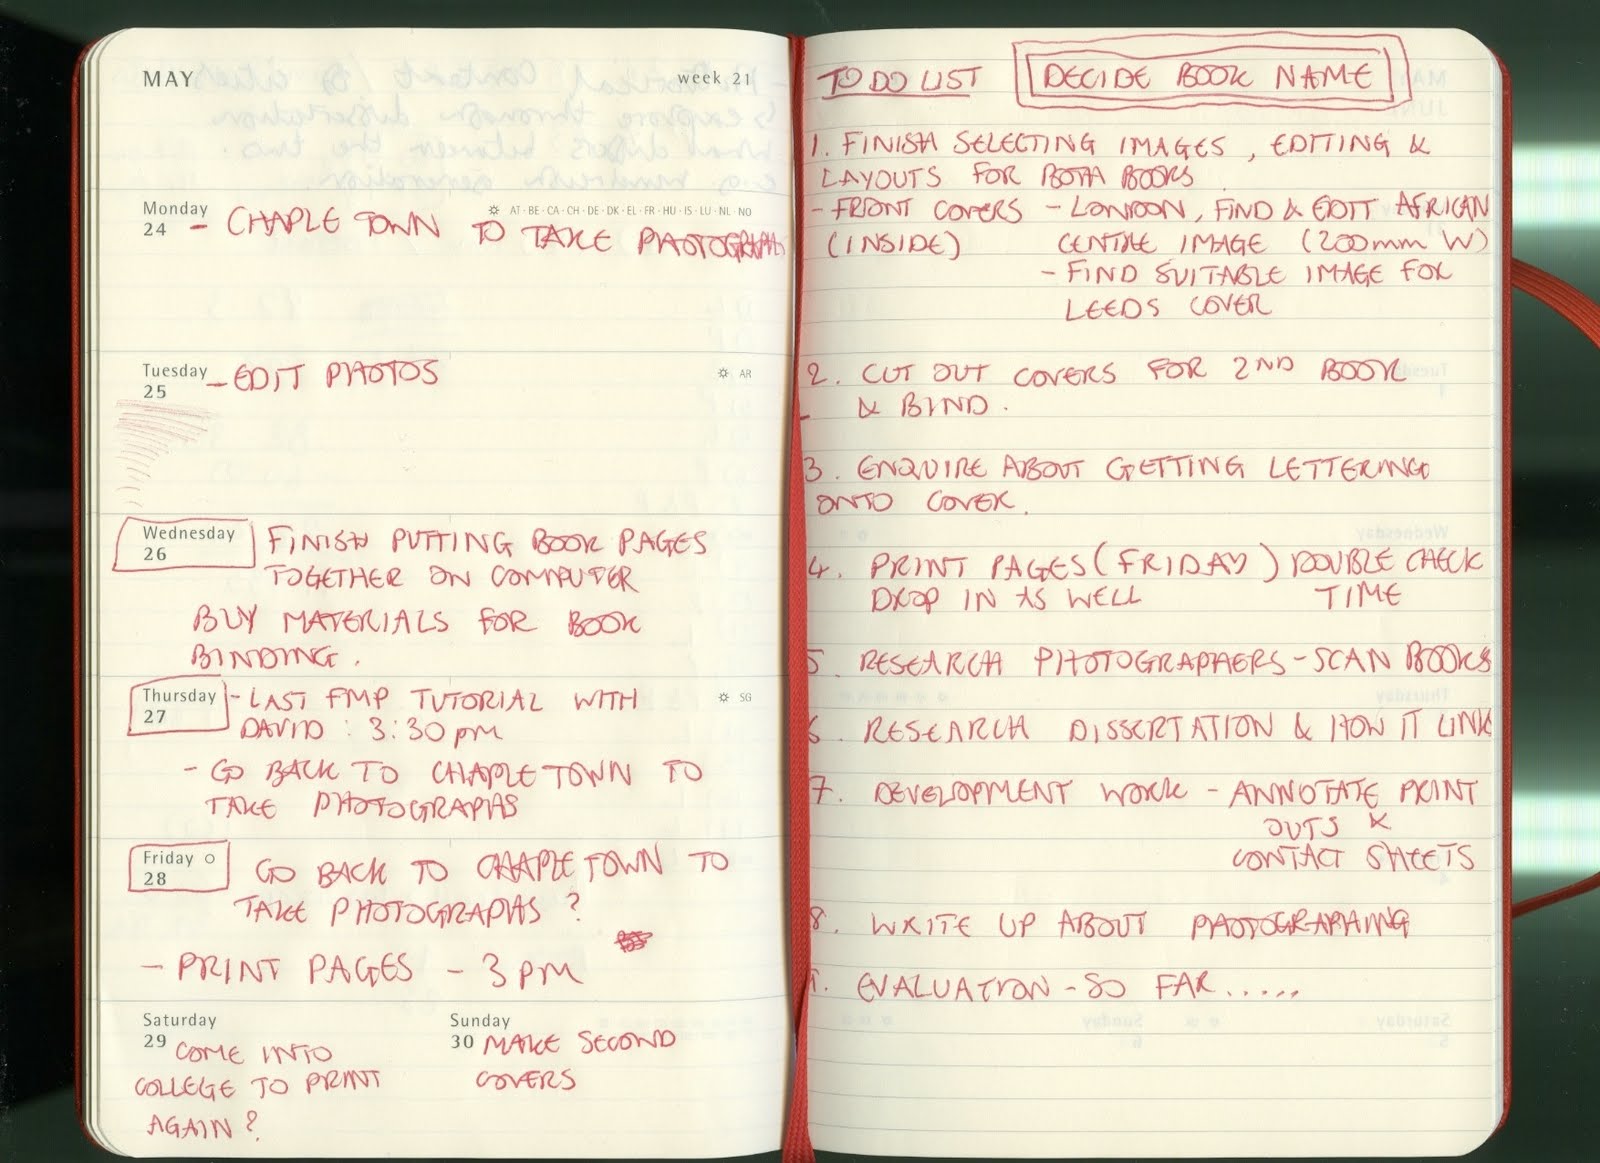 MAY
week 21
Monday
24
AT · BE · CA · CH · DE · DK · EL · FR · HU · IS · LU · NL · NO
- CHAPLE TOWN TO TAKE PHOTOGRAPHS
Tuesday
25
- EDIT PHOTOS
AR
Wednesday
26
FINISH PUTTING BOOK PAGES
TOGETHER ON COMPUTER
BUY MATERIALS FOR BOOK
BINDING.
Thursday
27
- LAST FMP TUTORIAL WITH
DAVID : 3:30pm
SG
- GO BACK TO CHAPLETOWN TO
TAKE PHOTOGRAPHS
Friday
28
GO BACK TO CHAPLETOWN TO
TAKE PHOTOGRAPHS ?
- PRINT PAGES - 3PM
Saturday
29
COME INTO
COLLEGE TO PRINT
AGAIN?
Sunday
30
MAKE SECOND
COVERS
TO DO LIST
DECIDE BOOK NAME
1. FINISH SELECTING IMAGES, EDITING &
LAYOUTS FOR BOTH BOOKS
- FRONT COVERS - LONDON, FIND & EDIT AFRICAN
(INSIDE) CENTRE IMAGE (200mm W)
- FIND SUITABLE IMAGE FOR
LEEDS COVER
2. CUT OUT COVERS FOR 2ND BOOK
& BIND.
3. ENQUIRE ABOUT GETTING LETTERING
ONTO COVER.
4. PRINT PAGES (FRIDAY) DOUBLE CHECK
DROP IN AS WELL TIME
5. RESEARCH PHOTOGRAPHERS - SCAN BOOKS
6. RESEARCH DISSERTATION & HOW IT LINK
7. DEVELOPMENT WORK - ANNOTATE PRINT
OUTS &
CONTACT SHEETS
8. WRITE UP ABOUT PHOTOGRAPHING
9. EVALUATION - SO FAR.....